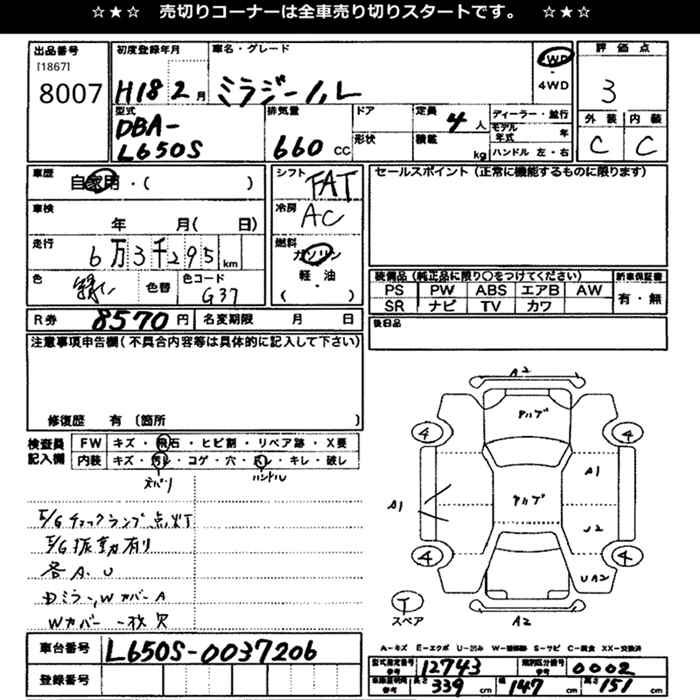 ☆★☆ 売切りコーナーは全車売り切りスタートです。 ☆★☆
出品番号
[1867]
8007
初度登録年月
H18 2月
車名・グレード
ミラジーノL
2WD
・
4WD
評価点
3
外装 内装
C C
型式
DBA-
L650S
排気量
660 CC
ドア
形状
定員
4人
積載
kg
ディーラー・並行
モデル年式 年
ハンドル 左・右
車歴
自家用・( )
車検
年 月( 日)
走行
6万3千295km
色
色替
色コード
G37
シフト
FAT
冷房
AC
燃料
ガソリン
軽・油
( )
セールスポイント(正常に機能するものに限ります)
装備品(純正品に限り〇をつけてください)
PS PW ABS エアB AW
SR ナビ TV カワ
新車保証書
有・無
後日品
R券 8570円
名変期限 月 日
注意事項申告欄(不具合内容等は具体的に記入して下さい)
修復歴 有 (箇所 )
検査員
記入欄
FW キズ・飛石・ヒビ割・リペア跡・X要
内装 キズ・汚レ・コゲ・穴・スレ・キレ・破レ
ハンドル
E/Gチェックランプ点灯
E/G振動有り
各A、U
Dミラー、WカバーA
Wカバー一枚欠
車台番号 L650S-0037206
登録番号
A2
アルブ
4 4
A1
A1
アルブ
U2
4 4
UA2
T
スペア
A2
A-キズ E-エクボ U-凹み W-補修跡 S-サビ C-腐食 XX-交換済
型式指定番号 参考 12743
類別区分番号 参考 0002
車両明細 参考 長さ 339 cm 幅 147 cm 高さ 151 cm